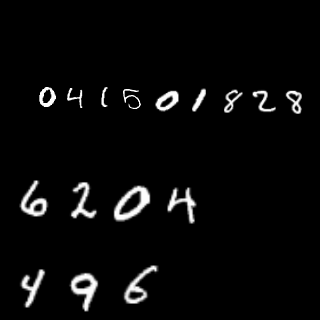 041501828
6204
496